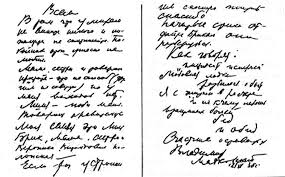 Всем
В том что умираю
не вините никого и
пожалуйста не сплетничайте. По
койник этого ужасно не
любил.
Мама сестры и товарищи
простите – это не способ (дру
гим не советую) но у
меня выходов нет.
Лиля – люби меня.
Товарищ правительство
моя семья это Лиля
Брик, мама, сестры и
Вероника Витольдовна По
лонская. –
Если ты устроишь
им сносную жизнь
спасибо
Начатые стихи от
дайте Брикам они
разберутся.
Как говорят
инцидент исперчен
Любовная лодка
разбилась о быт
Я с жизнью в расчете
и не к чему перечень
взаимных болей
бед
и обид
Счастливо оставаться
Владимир
Маяковский